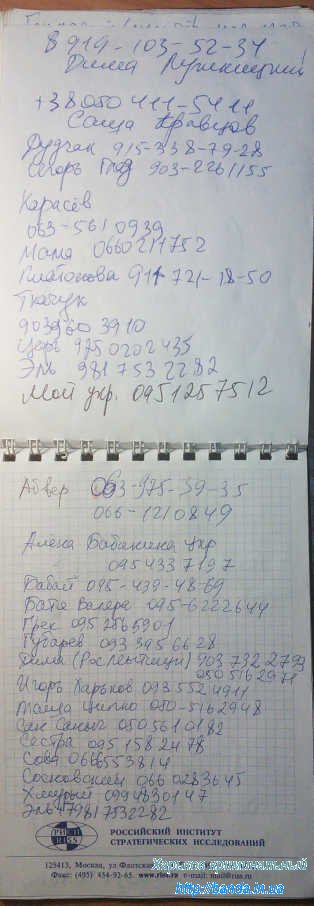 8 919-103-52-34
Дима
+38050 411-5411
Саша Кравцов
Дудчак 915-338-79-28
Игорь 903-2261155
Карасёв
063-561 0939
Мама 0660211752
Платонова 911 721-18-50
Ткачук
3910
Царь 925 0202435
Эль 981 753 2282
Мой укр. 0951257512
Абвер 063-975-39-35
066-1210849
Алена Бабакина укр
095 433 7197
Бабай 095-439-48-69
Батя Валера 095-6222644
Грек 095
Губарев 093 395 66 28
Дима 903 732 2793
050 5162971
Игорь Харьков 093 552 4911
Маша Ципко 050-516 29 48
Сан Саныч 050 561 0182
Сестра 095 158 24 78
Сова 066
Сосновский 066 0283645
Хмурый 0994830147
Эль +79817532282
РИСИ
RISS
РОССИЙСКИЙ ИНСТИТУТ
СТРАТЕГИЧЕСКИХ ИССЛЕДОВАНИЙ
129413, Москва, ул. Флотская
Факс: (495) 454-92-65. www.riss.ru e-mail: mail@riss.ru